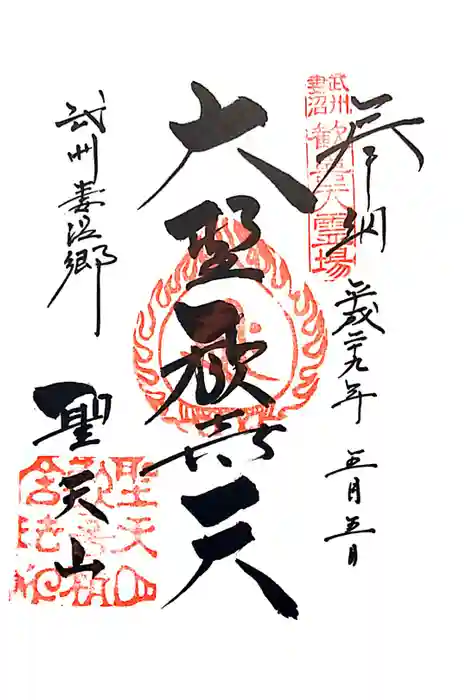 奉納
平成二十九年 五月五日
武州妻沼
歓喜天霊場
大聖歓喜天
武州妻沼郷
聖天山
聖天山